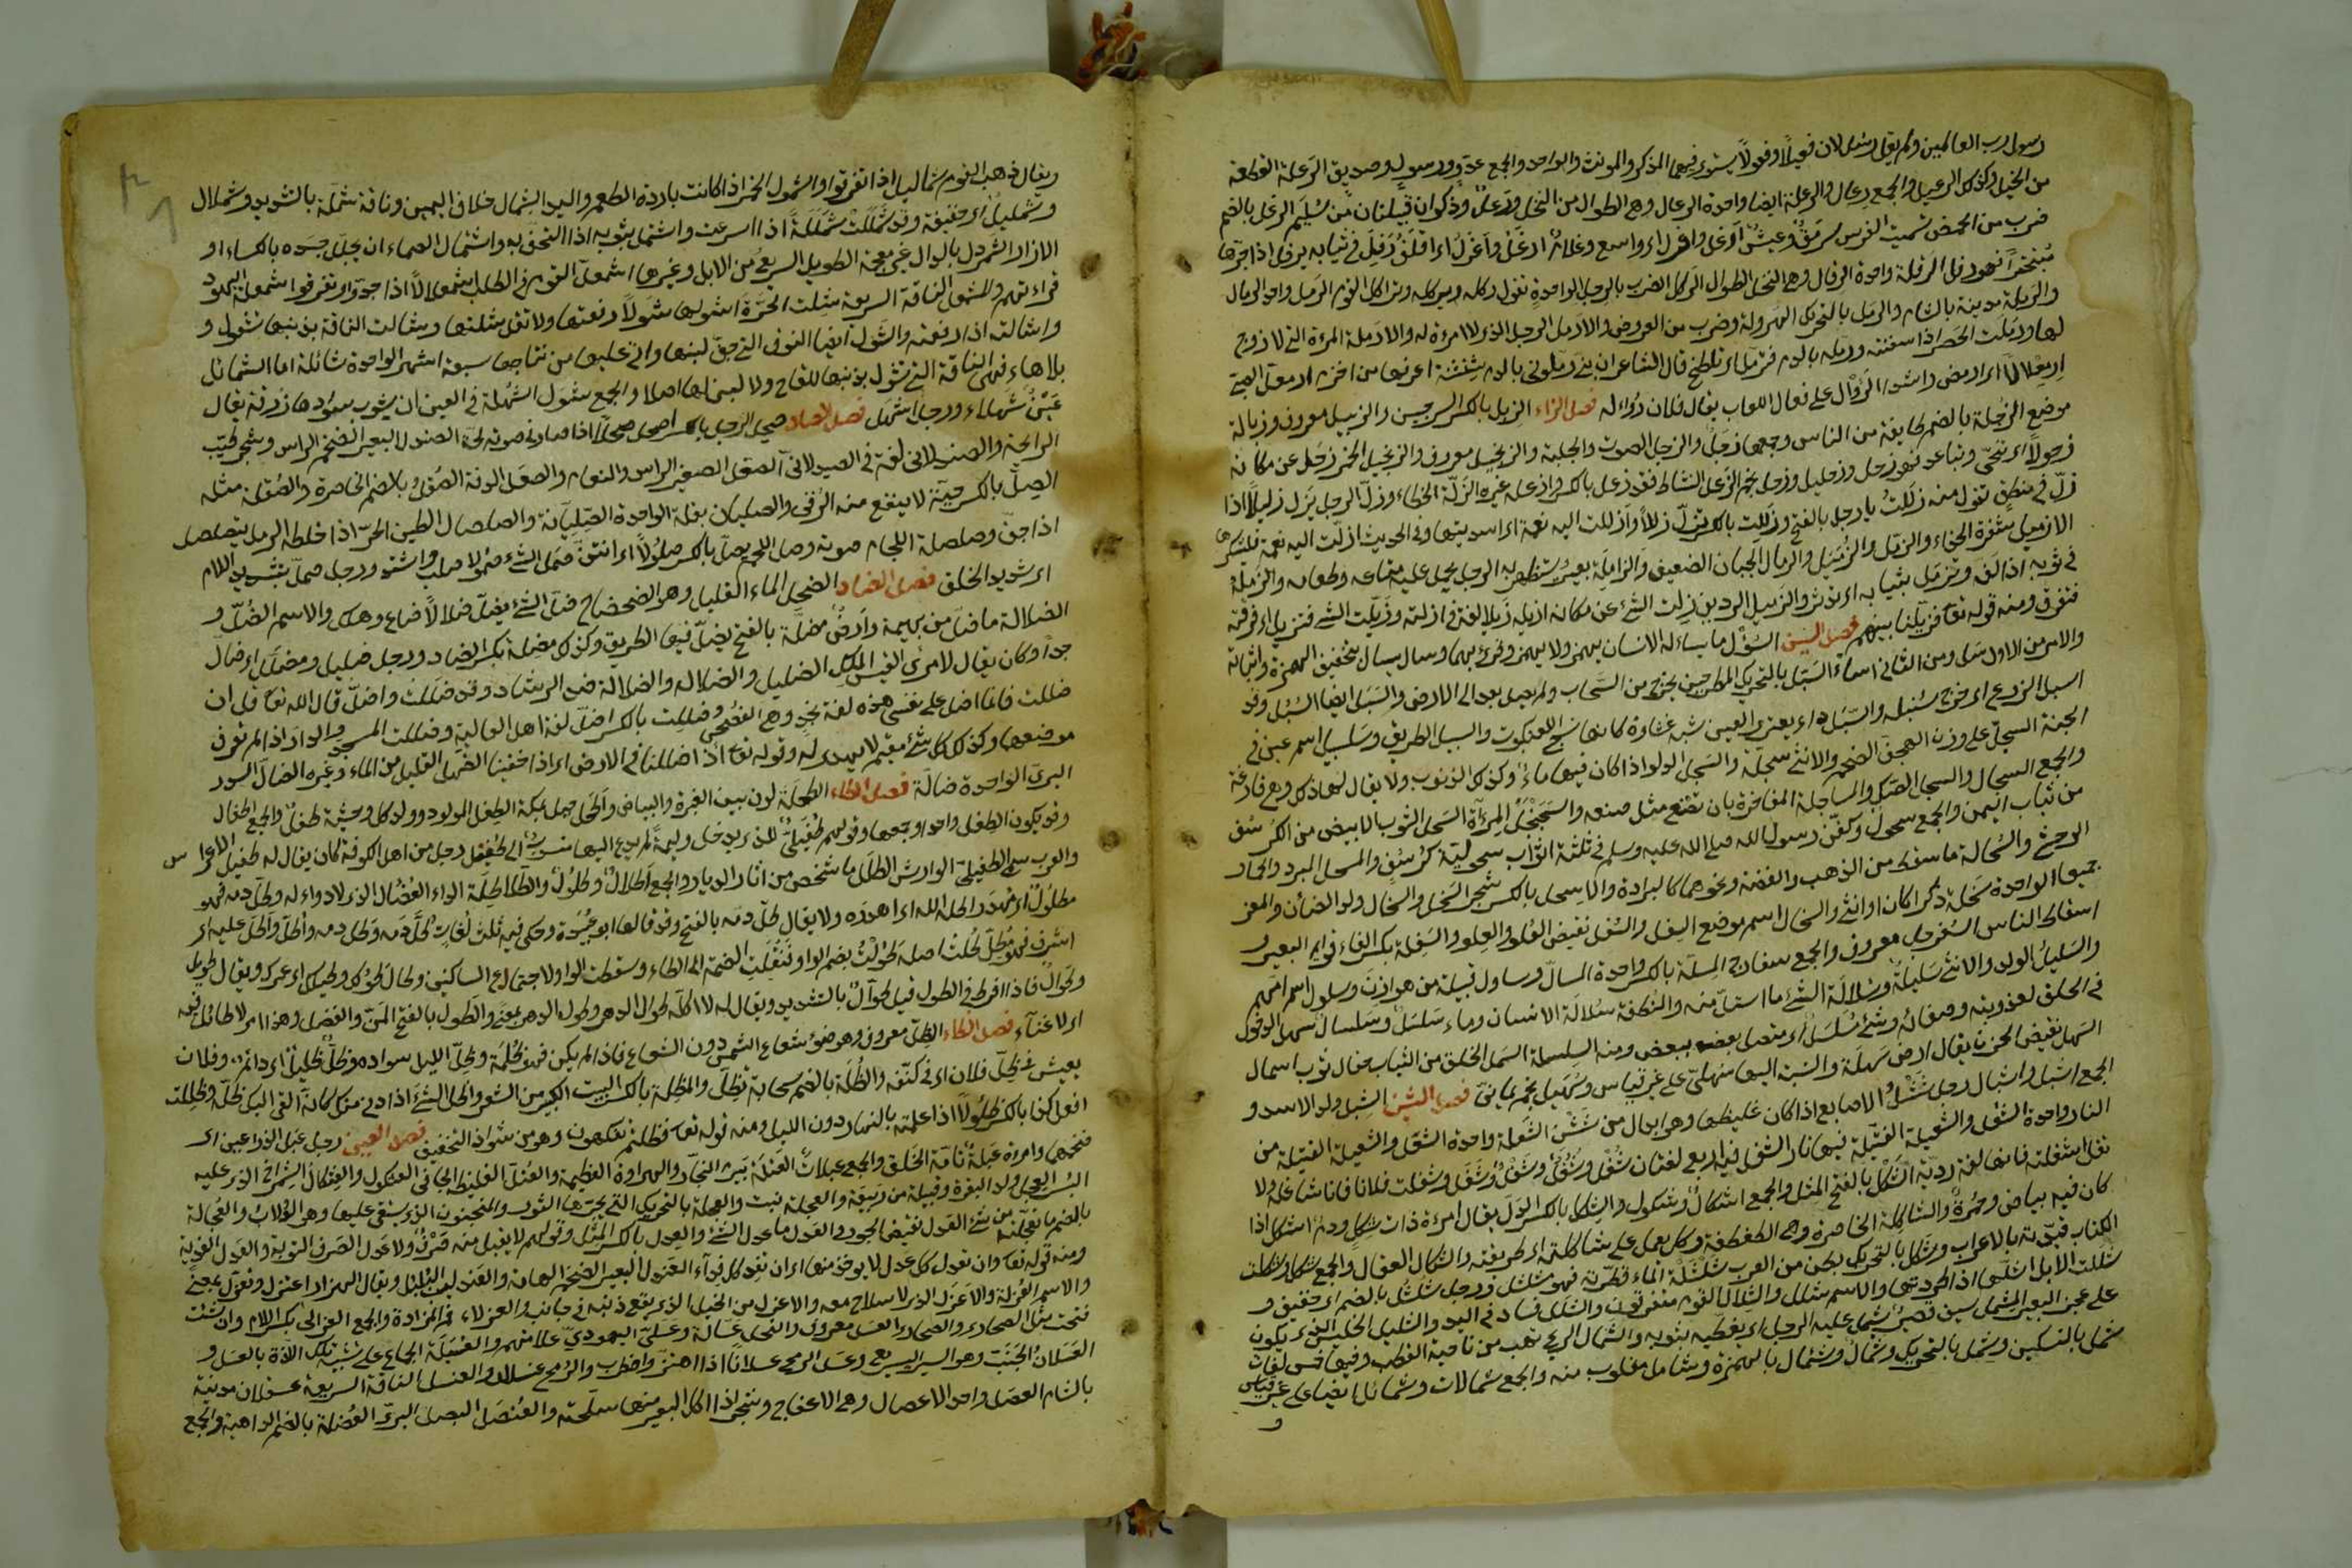 رسول رب العالمين ولم يقل رسل لان فعيلا وفعولا يستوى فيهما المذكر والمونث والواحد والجمع مثل عدو ورسول وصديق الرعلة القطعة
من الخيل وكذلك الرعيل والجمع رعال والرعلة ايضا واحدة الرعال وهى الطوال من النخل ورعل وذكوان قبيلتان من سليم الرغل بالضم
ضرب من الحمض تسميه الفرس سرمق وعيش ارغل واغرل اى واسع وغلام ارغل واغرل اى اقلف رفل فى ثيابه يرفل اذا جرها
متبخترا فهو رفل الرقلة واحدة الرقال وهى النخل الطوال الركل الضرب بالرجل الواحدة تقول ركله يركله وتراكل القوم الرمل واحد الرمال
والرملة مدينة بالشام والرمل بالتحريك الهرولة وضرب من العروض والارمل الرجل الذى لا امرءة له والارملة المرءة التى لا زوج
لها ورملت الحصير اذا سففته ورمله بالدم فترمل اى تلطخ قال الشاعر ان بنى رملونى بالدم شنشنة اعرفها من اخزم ارمعل الصبى
ارمعلالا اى الروال على فعال اللعاب يقال فلان رواله فصل الزاء الزبل بالكسر السرجين والزبيل معروف وزبالة
موضع الزجلة بالضم طايفة من الناس وجمعها زجل والزجل الصوت والجلبة والزنجبيل معروف والزنجبيل الخمر زحل عن مكانه
زحولا اى تنحى وتباعد فهو زحل وزحليل وزحل نجم الزعل النشاط فقد زعل بالكسر وازعله غيره الزلة الخطاء وزل الرجل يزل زليلا اذا
زل فى منطق تقول منه زللت يا رجل بالفتح وزللت بالكسر تزل زللا وازللت اليه نعمة اى اسديتها وفى الحديث من ازلت اليه نعمة فليشكرها
الازميل شفرة الحذاء والزمل والزميل والزمال الجبان الضعيف والزاملة بعير يستظهر به الرجل يحمل عليه متاعه وطعامه والزمله
فى ثوبه اذا لفه وتزمل بثيابه اى تدثر والزميل الرديف زلت الشئ عن مكانه ازيله زيلا لغة فى ازلته وزيلت الشئ فتزيل اى فرقته
فتفرق ومنه قوله تعا فزيلنا بينهم فصل السين السؤل ما يساله الانسان يهمز ولا يهمز وقرئ بهما وسال يسال بتخفيف الهمزة واثباته
والامر من الاول سل ومن الثانى اسال السبل بالتحريك المطر حين يخرج من السحاب ولم يصل بعد الى الارض والسبل ايضا السنبل وقد
اسبل الزرع اى خرج سنبله والسبل داء يعترى العين شبه غشاوة كانها نسج العنكبوت والسبيل الطريق وسلسبيل اسم عين فى
الجنة السجل على وزن الضخم والانثى سجلة والسجل الدلو اذا كان فيها ماء وكذلك الذنوب ولا يقال لهما ذلك وهى فارغة
والجمع السجال والسجل الصك والمساجلة المفاخرة بان تصنع مثل صنعه والسجنجل المرآة السحل الثوب الابيض من الكرسف
من ثياب اليمن والجمع سحول وكفن رسول الله صلى الله عليه وسلم فى ثلثة اثواب سحولية كرسف والمسحل المبرد والحمار
الوحش والسحالة ما سقط من الذهب والفضة ونحوهما كالبرادة والاسحل بالكسر شجر السخل والسخال ولد الضأن والمعز
جميعا الواحدة سخلة ذكرا كان او انثى والسخال اسم موضع السفل والسفل نقيض العلو والعلو والسفلة بكسر الفاء قوايم البعير و
اسقاط الناس السفرجل معروف والجمع سفارج المسلة بالكسر واحدة المسال وسلول قبيلة من هوازن وسلول اسم امهم
والسليل الولد والانثى سليلة وسلالة الشئ ما استل منه والنطفة سلالة الانسان وماء سلسل وسلسال سهل الدخول
فى الحلق لعذوبته وصفائه وشئ مسلسل اى متصل بعضه ببعض ومنه السلسلة السمل الخلق من الثياب يقال ثوب اسمال
السهل نقيض الحزن يقال ارض سهلة والنسبة اليها سهلى على غير قياس وسهيل نجم يمانى فصل الشين الشبل ولد الاسد و
الجمع اشبل واشبال رجل ششل الاصابع اذا كان غليظها وهو ابدال من شثن الشعلة واحدة الشعل والشعيلة الفتيلة من
النار واحدة الشعل والشعيلة الفتيلة فيها نار الشغل فيه اربع لغات شغل وشغل وشغل وشغل وشغلت فلانا فانا شاغل ولا
تقل اشغلته فانها لغة ردية الشكل بالفتح المثل والجمع اشكال وشكول والشكل بالكسر الدل يقال امرءة ذات شكل ودم اشكل اذا
كان فيه بياض وحمرة والشاكلة الخاصرة وهى الطفطفة وكل يعمل على شاكلته اى طريقته والشكال العقال والجمع شكل وشكلت
الكتاب قيدته بالاعراب وشكل بالتحريك بطن من العرب شلشلة الماء قطرته فهو شلشل ورجل شلشل بالضم اى خفيف و
شللت الابل اشلها اذا طردتها والاسم شلل والشلال القوم متفرقون والشلل فساد فى اليد والشليل الحلس الذى يكون
على عجز البعير المشمل سيف قصير يشتمل عليه الرجل اى يغطيه بثوبه والشمال الريح تهب من ناحية القطب وفيها خمس لغات
شمل بالتسكين وشمل بالتحريك وشمال وشمأل بالهمزة وشامل مقلوب منه والجمع شمالات وشمائل ايضا على غير قياس
و
ويقال ذهب القوم شماليل اذا تفرقوا والشمول الخمر اذا كانت باردة الطعم واليد الشمال خلاف اليمين وناقة شملة بالتشديد وشملال
وشمليل اى خفيفة وقد شمللت شمللة اذا اسرعت واشتمل بثوبه اذا التحف به واشتمال الصماء ان يجلل جسده بالكساء او
الازار الشمردل بالدال غير معجمة الطويل السريع من الابل وغيرها اشمعل القوم فى الطلب اشمعلالا اذا جدوا وتفرقوا اشمعلة اليهود
قراءتهم والمشمعل الناقة السريعة شلت الجرة اشولها شولا رفعتها ولا تقل شلتها وشالت الناقة بذنبها تشول و
واشالته اذا رفعته والشول ايضا النوق التى جف لبنها واتى عليها من نتاجها سبعة اشهر الواحدة شائلة اما الشائل
بلا هاء فهى الناقة التى تشول بذنبها للقاح ولا لبن لها اصلا والجمع شول الشهلة فى العين ان يشوب سوادها زرقة يقال
عين شهلاء ورجل اشهل فصل الصاد صحل الرجل بالكسر يصحل صحلا اذا صار فى صوته بحة الصندل البعير الضخم الراس وشجر طيب
الرائحة والصندلانى لغة فى الصيدلانى الصعل الصغير الراس والنعام والصعل الدقة الصقل بالضم الخاصرة والصقلة مثله
الصل بالكسر حية لا ينفع منه الرقى والصليان بقلة الواحدة الصليانة والصلصال الطين الحر اذا خلطه الرمل يتصلصل
اذا جف وصلصلة اللجام صوته وصل اللحم يصل بالكسر صلولا اى انتن صمل الشئ صمولا صلب واشتد ورجل صمل بتشديد اللام
اى شديد الخلق فصل الضاد الضحل الماء القليل وهو الضحضاح ضل الشئ يضل ضلالا ضاع وهلك والاسم الضل و
الضلالة ما ضل من بهيمة وارض مضلة بالفتح يضل فيها الطريق وكذلك مضلة بكسر الضاد ورجل ضليل ومضلل اى ضال
جدا وكان يقال لامرئ القيس الملك الضليل والضلال والضلالة ضد الرشاد وقد ضللت واضل قال الله تعا قل ان
ضللت فانما اضل على نفسى هذه لغة نجد وهى الفصحى وضللت بالكسر اضل لغة اهل العالية وضللت المسجد والدار اذا لم تعرف
موضعهما وكذلك كل شئ مقيم لا يهتدى له وقوله تعا ائذا ضللنا فى الارض اى اذا خفينا الضهل القليل من الماء وغيره الضال السدر
البرى الواحدة ضالة فصل الطاء الطحلة لون بين الغبرة والبياض واطحل جبل بمكة الطفل المولود وولد كل وحشية طفل والجمع اطفال
وقد يكون الطفل واحدا وجمعا وقولهم طفيلى للذى يدخل وليمة لم يدع اليها منسوب الى طفيل رجل من اهل الكوفة كان يقال له طفيل الاعراس
والعرب تسمى الطفيلى الوارش الطلل ما شخص من اثار الديار والجمع اطلال وطلول والطلاطلة الداء العضال الذى لا دواء له وطل دمه فهو
مطلول اى هدر واطله الله اى اهدره ولا يقال طل دمه بالفتح وقد قالها ابو عبيدة وحكى فيه ثلث لغات طل دمه وطل دمه واطل واطل عليه اى
اشرف فهو مطل طلت اصله طولت بضم الواو فنقلت الضمة الى الطاء وسقطت الواو لاجتماع الساكنين وطال طولك وطيلك اى عمرك ويقال طويل
وطوال فاذا افرط فى الطول قيل طوال بالتشديد ويقال له لا اكلمه طوال الدهر وطول الدهر بمعنى والطول بالفتح المن والفضل وهذا امر لا طائل فيه
اى لا غناء فصل الظاء الظل معروف وهو ضوء شعاع الشمس دون الشعاع فاذا لم يكن فهو ظلمة وظل الليل سواده وظل ظليل اى دائم وفلان
يعيش فى ظل فلان اى فى كنفه والظلة بالضم سحابة تظل والمظلة بالكسر البيت الكبير من الشعر واظل الشئ اذا دنى منك كانه القى اليك ظله وظللت
افعل كذا بالكسر ظلولا اذا عملته بالنهار دون الليل ومنه قوله تعا فظلتم تفكهون وهو من شواذ التخفيف فصل العين رجل عبل الذراعين اى
ضخمهما وامرءة عبلة تامة الخلق والجمع عبلات العتلة بيرم النجار والهراوة الغليظة والعتل الغليظ الجافى العثكول والعثكال الشمراخ الذى عليه
البسر العجل ولد البقرة وقبيلة من ربيعة والعجلة نبت والعجلة بالتحريك التى يجرها الثور والمنجنون الذى يستقى عليها وهى الدولاب والعجالة
بالضم ما تعجلته من شئ العدل نقيض الجور والعدل ما عدل الشئ والعدل بالكسر المثل وقولهم لا يقبل منه صرف ولا عدل الصرف التوبة والعدل الفدية
ومنه قوله تعا وان تعدل كل عدل لا يؤخذ منها اى ان تفد كل فداء العندل البعير الضخم الهامة والعندليب البلبل ويقال الهزار اعتزل وتعزل بمعنى
والاسم العزلة والاعزل الذى لا سلاح معه والاعزل من الخيل الذى يقع ذنبه فى جانب والعزلاء فم المزادة والجمع العزالى بكسر اللام وان شئت
فتحت مثل الصحارى والصحارى العسل معروف والنحل عسالة وعسلى اليهود علامتهم والعسيلة الجماع على تشبيه تلك اللذة بالعسل و
العسلان الخبب وهو السير السريع وعسل الرمح عسلانا اذا اهتز واضطرب والرمح عسال والعنسل الناقة السريعة عسقلان مدينة
بالشام العصل واحد الاعصال وهى الاعفاج وشجر اذا اكل البعير منها سلحته والعنصل البصل البرى العضلة بالضم الداهية والجمع